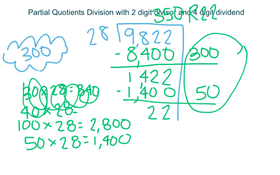 Partial Quotients Division with 2 digit divisor and 4 digit dividend
350 R22
28 9822
300
- 8,400 300
1422
- 1,400 50
22
30 × 28 = 840
40 × 28 =
100 × 28 = 2,800
50 × 28 = 1,400